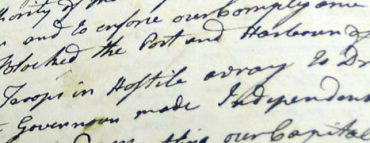 of the
and to enforce our Complyance
Blocked the Port and Harbour of
Troops in Hostile array to Dr
Governour made Independent
our Capital